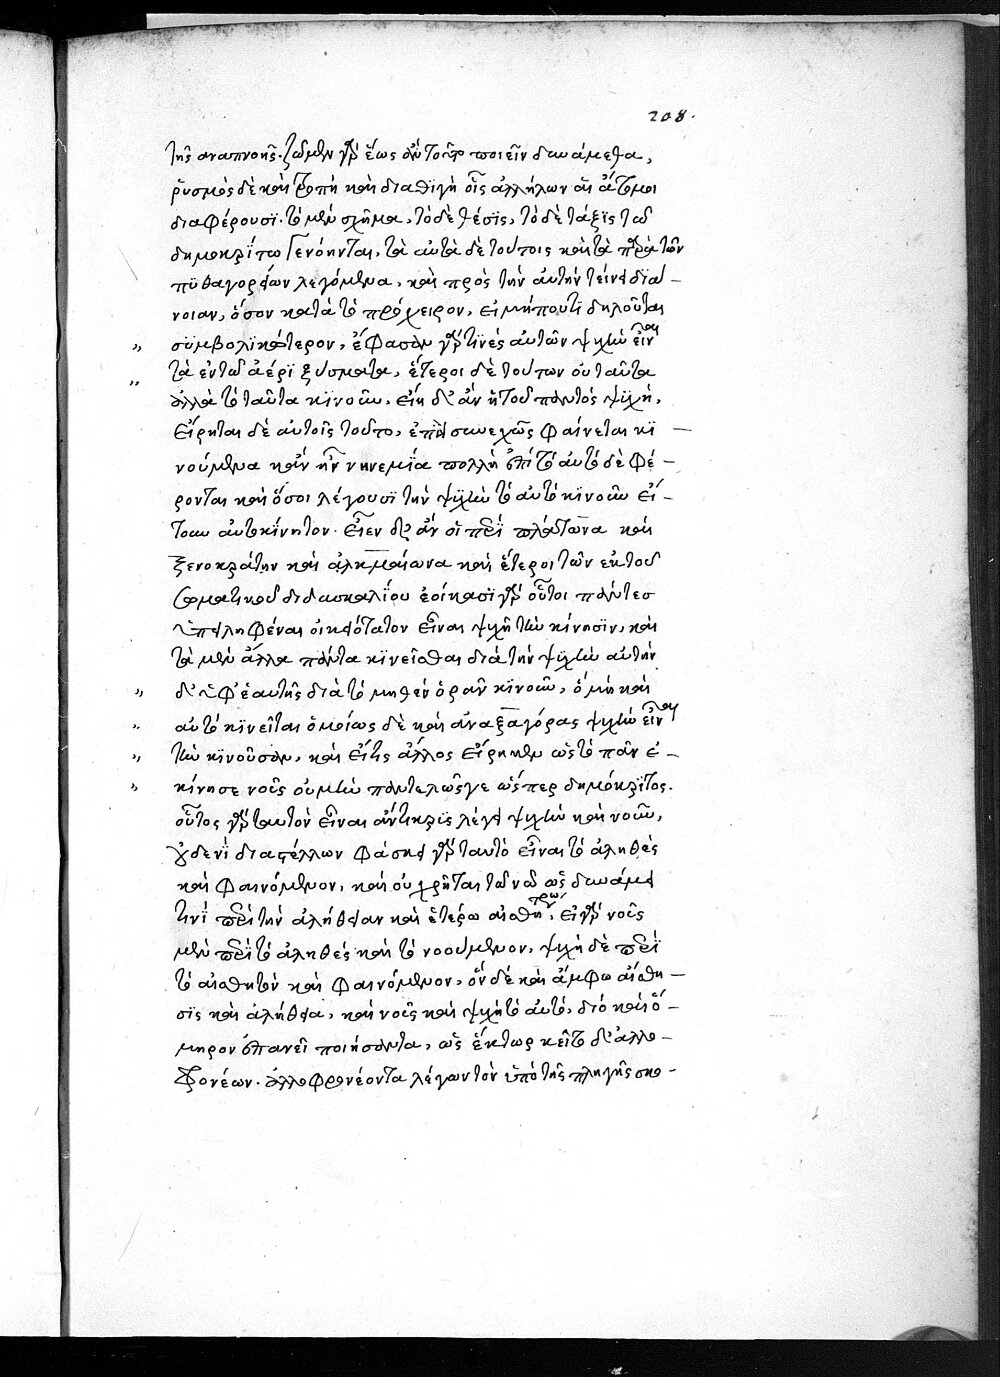 208.
τῆς αναπνοῆς. ζῶμεν γὰρ ἕως ἂν τοῦτο ποιεῖν δυνάμεθα,
ῥυσμὸς δὲ καὶ τροπὴ καὶ διαθιγὴ οἷς ἀλλήλων αἱ ἄτομοι
διαφέρουσι. τὸ μὲν σχῆμα, τὸ δὲ θέσις, τὸ δὲ τάξις τῶ
δημοκρίτω ἐνόηνται, τὰ αὐτὰ δὲ τούτοις καὶ τὰ παρὰ τῶν
πυθαγορείων λεγόμενα, καὶ πρὸς τὴν αὐτὴν τείνει διά-
νοιαν, ὅσον κατὰ τὸ πρόχειρον, εἰ μήπου τι δηλοῦται
συμβολικώτερον, ἔφασαν γάρ τινὲς αὐτῶν ψυχὴν εἶναι
τὰ ἐν τῶ ἀέρι ξύσματα, ἕτεροι δὲ τούτων οὐ ταῦτα
ἀλλὰ τὸ ταῦτα κινοῦν, εἴη δ' ἂν ἡ τοῦ παντὸς ψυχή,
εἴρηται δὲ αὐτοῖς τοῦτο, ἐπεὶ συνεχῶς φαίνεται κι-
νούμενα κἂν ἦν νηνεμία πολλὴ ἐπὶ τὸ αὐτὸ δὲ φέ-
ρονται καὶ ὅσοι λέγουσι τὴν ψυχὴν τὸ αὐτὸ κινοῦν εἴ-
τουν αὐτοκίνητον. εἶεν δ' ἂν οἱ περὶ πλάτωνα καὶ
ξενοκράτην καὶ ἀλκμαίωνα καὶ ἕτεροι τῶν ἐκ τοῦ
σωματικοῦ διδασκαλίου ἐοίκασι γὰρ οὗτοι πάντες
ὑπειληφέναι οἰκειότατον εἶναι ψυχῆ τὴν κίνησιν, καὶ
τὰ μὲν ἄλλα πάντα κινεῖσθαι διὰ τὴν ψυχὴν αὐτὴν
δ' ὑφ' ἑαυτῆς διὰ τὸ μηθὲν ὁρᾶν κινοῦν, ὃ μὴ καὶ
αὐτὸ κινεῖται ὁμοίως δὲ καὶ ἀναξαγόρας ψυχὴν εἶναι
τὴν κινοῦσαν, καὶ εἴ τις ἄλλος εἴρηκεν ὡς τὸ πᾶν ἐ-
κίνησε νοῦς οὐ μὴν παντελῶς γε ὥσπερ δημόκριτος.
οὗτος γὰρ ταυτὸν εἶναι ἄντικρυς λέγει ψυχὴν καὶ νοῦν,
οὐδενὶ διαστέλλων φάσκει γὰρ ταυτὸ εἶναι τὸ ἀληθὲς
καὶ φαινόμενον, καὶ οὐ χρῆται τῶ νῶ ὡς δυνάμει
τινὶ περὶ τὴν ἀλήθειαν καὶ ἑτέρω αἰσθητῶ, εἰ γὰρ νοῦς
μὲν περὶ τὸ ἀληθὲς καὶ τὸ νοούμενον, ψυχὴ δὲ περὶ
τὸ αἰσθητὸν καὶ φαινόμενον, ἓν δὲ καὶ ἄμφω αἴσθη-
σις καὶ ἀλήθεια, καὶ νοῦς καὶ ψυχὴ τὸ αὐτό, διὸ καὶ ὅ-
μηρον ἐπαινεῖ ποιήσαντα, ὡς ἕκτωρ κεῖτο δ' ἀλλο-
φρονέων. ἀλλοφρονέοντα λέγων τὸν ὑπὸ τῆς πληγῆς σκο-